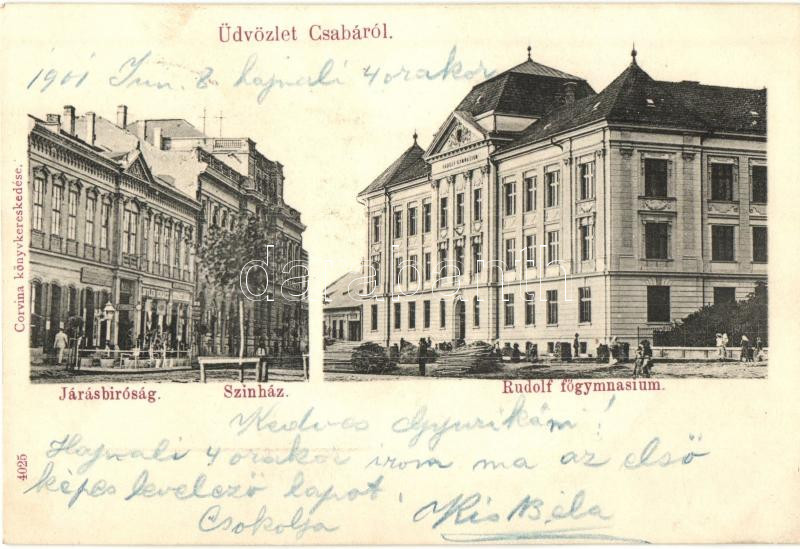 Üdvözlet Csabáról.
1901 Jun. 8 hajnali 4 orakor
RUDOLF GYMNASIUM
Corvina könyvkereskedése.
darabanth
Járásbiróság.
Szinház.
Rudolf főgymnasium.
Kedves Gyurikám!
Hajnali 4 orakor irom ma az első
képes levelező lapot.
Csokolja Kis Béla
4025